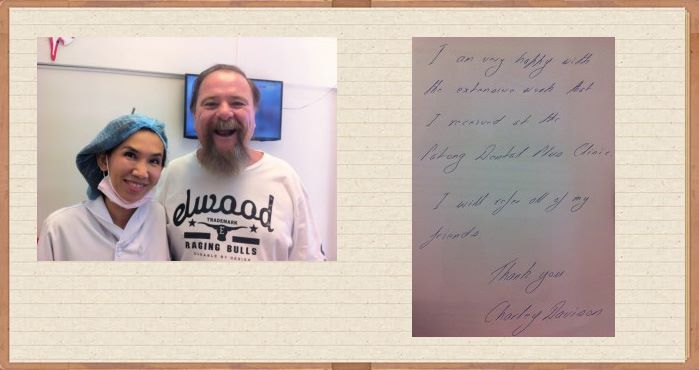 elwood
TRADEMARK
E
RAGING BULLS
DISABLE BY DESIGN
I am very happy with
the extensive work that
I received at the
Patong Dental Plus Clinic
I will refer all of my
friends
Thank you
Charley Davison